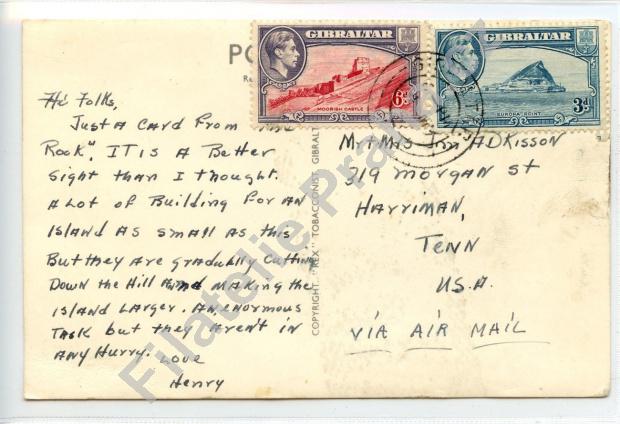 PO
GIBRALTAR
MOORISH CASTLE
6d
GIBRALTAR
EUROPA POINT
3d
Hi Folks,
Just a card from
Rock", IT IS A Better
sight than I thought.
A Lot of Building for an
Island as small as this
But they are gradually cutting
Down the Hill and making the
island Larger. An enormous
Task but they aren't in
any Hurry. Love
Henry
COPYRIGHT "REX" TOBACCONIST, GIBRAL
Mr + Mrs ADKISSON
319 Morgan St
Harriman,
Tenn
U.S.A.
VIA AIR MAIL
Filatelie Pra